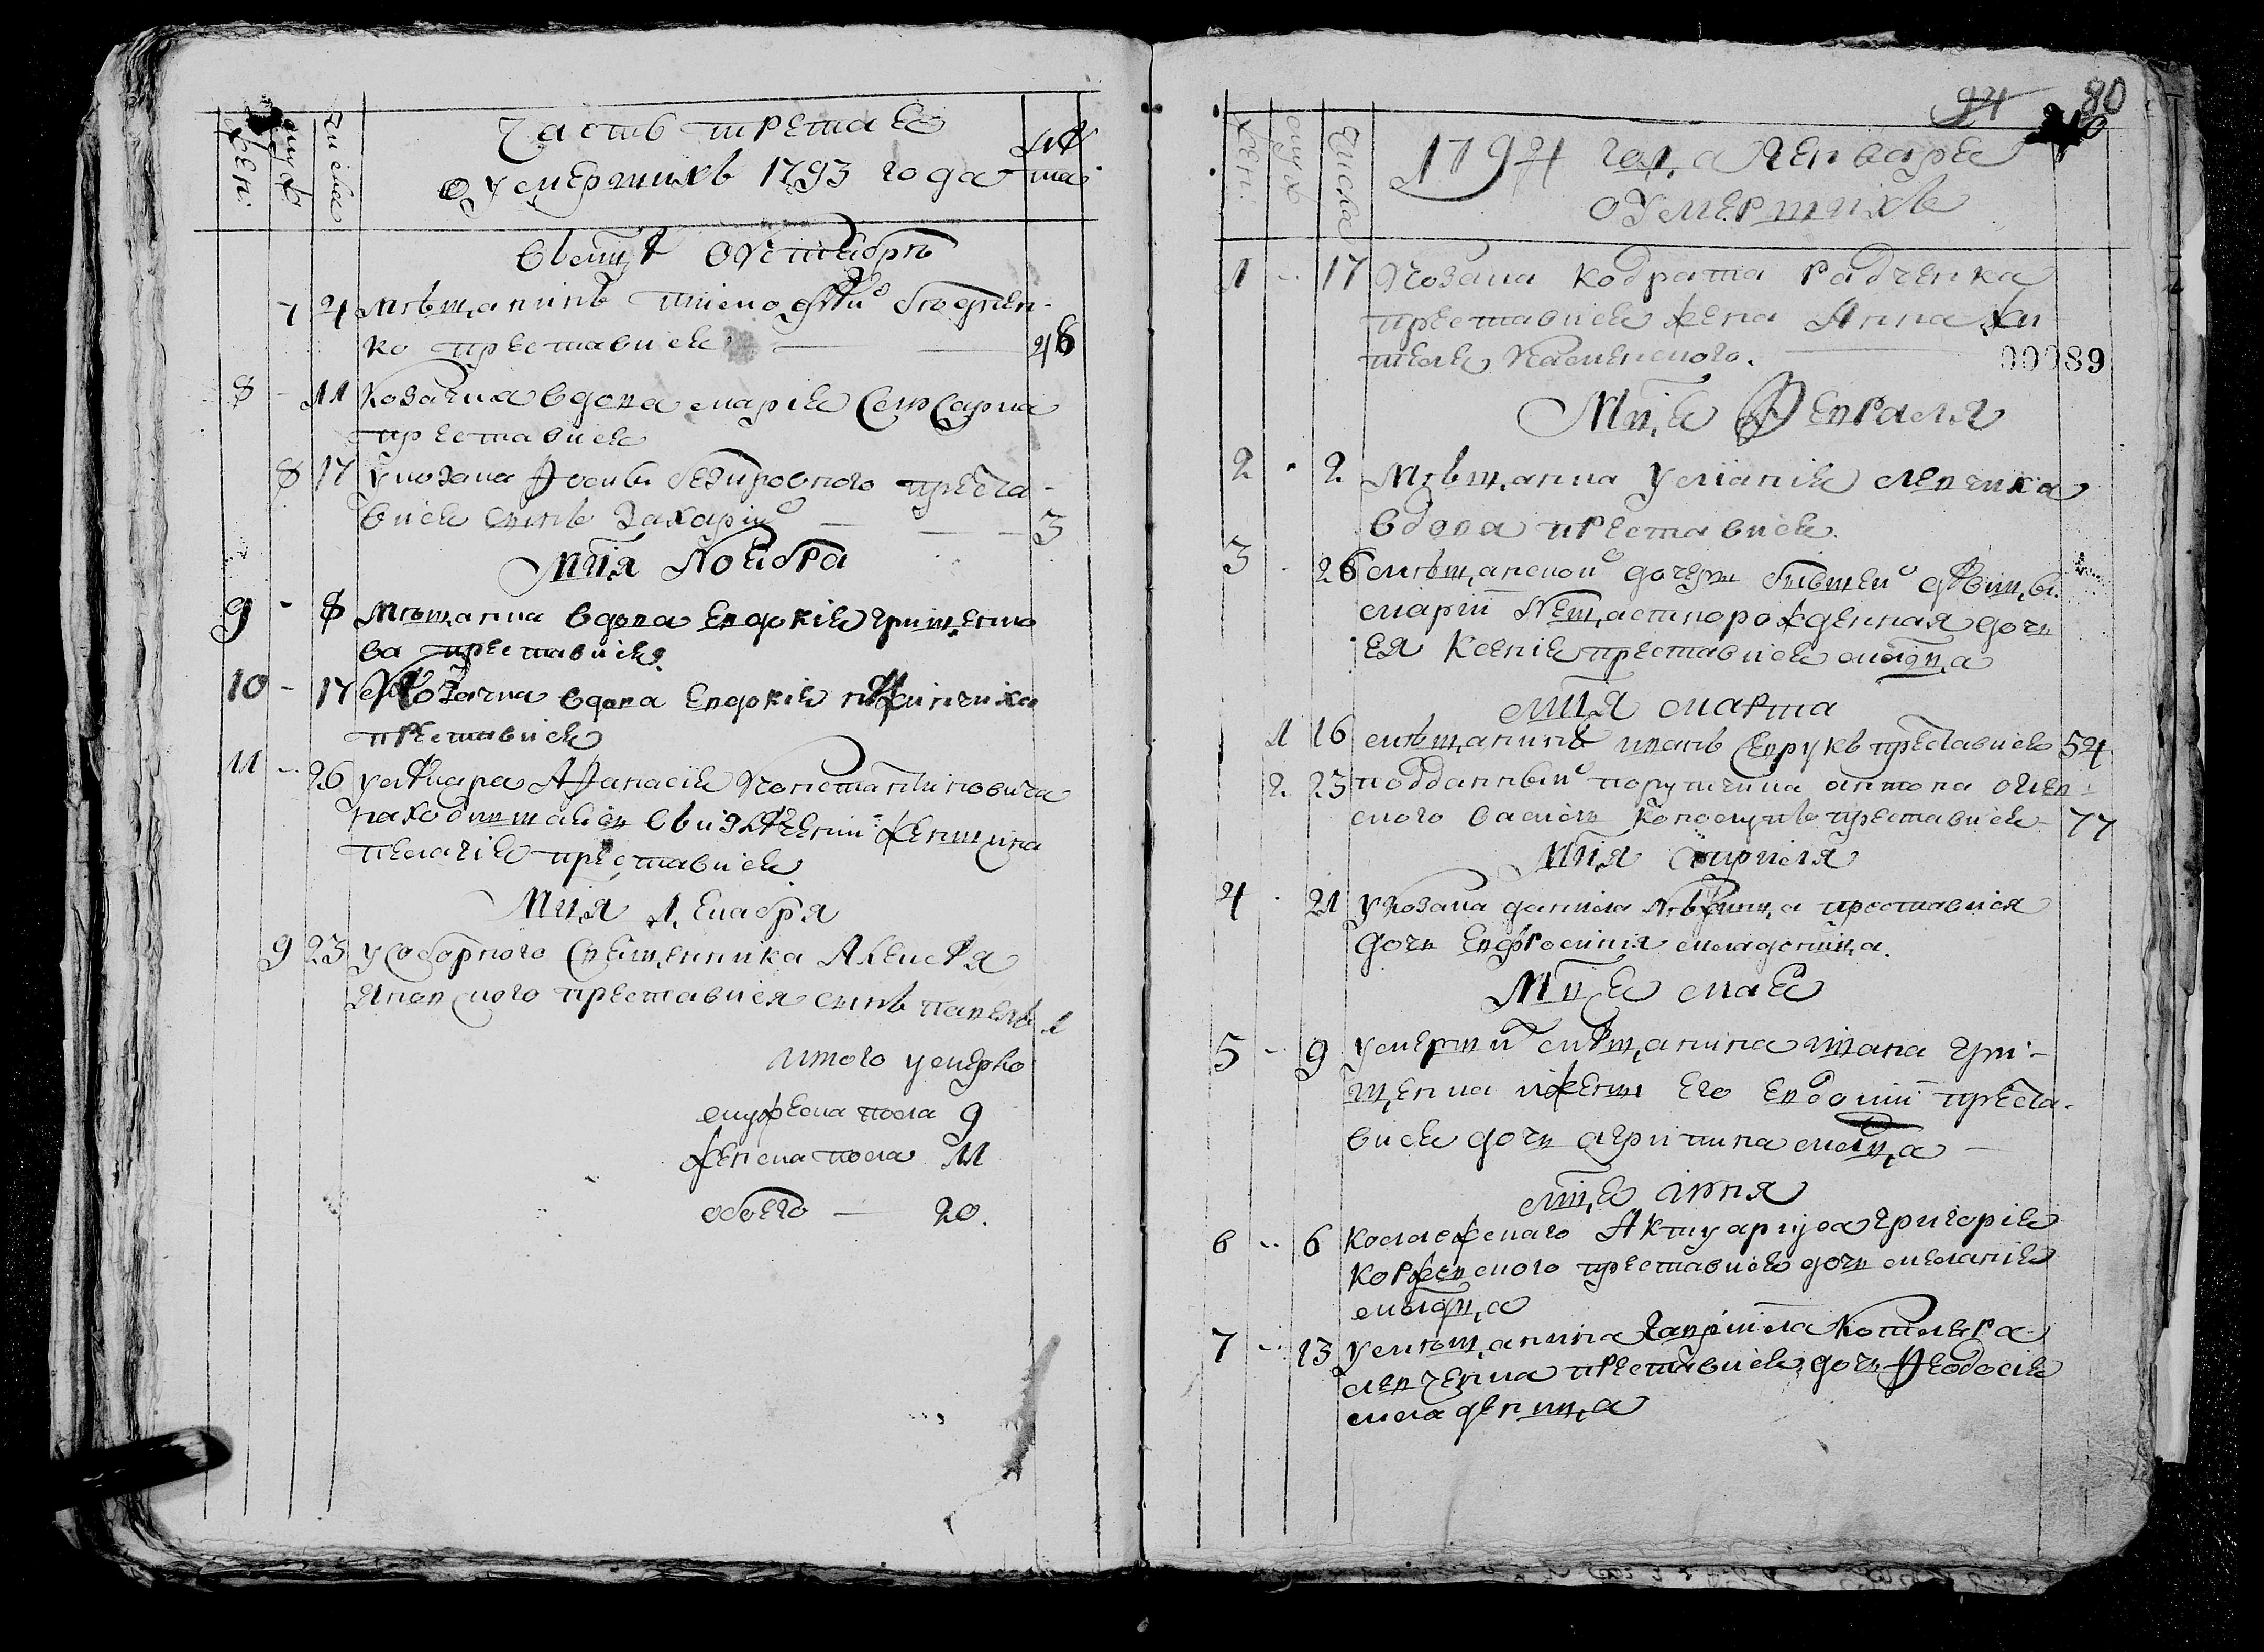 жен:
муж:
числа
Часть третая
о умершихъ 1793 года
лѣ
та
В мцѣ октябрѣ
7 4 Мѣщанинъ Тимофей
ко преставися 46
8 - 11 Козачка вдова Мария
преставися
8 17 У козака Иосифа преста-
вися сынъ Захарий 3
Мця Ноября
9 - 8 Мѣщанка вдова Евдокия Грищенко
ва преставися
10 - 17 Козачка вдова Евдокия
преставися
11 - 26 у лѣкара Афанасия Константиновича
находившаяся в излѣчении женщина
Пелагия преставися
Мця Декабря
9 23 у соборного священника Алексѣя
Яновского преставися сынъ Павелъ 1
Итого умерло
мужеска пола 9
женска пола 11
обоего — 20.
94 80
жен:
муж
числа
1794 года Генваря
о умершихъ
1 - 17 Козака Кодрата Радченка
преставися жена Анна жи
теля Каменского.
00089
Мця Февраля
2 - 2 Мѣщанка Улиания Левчиха
вдова преставися
3 - 26 мѣщанской дочери бывшей дѣвицы
Марии нещастнорожденная дочь
ея Ксения преставися младн,а
мця марта
1 16 мѣщанинъ Иванъ Саврукъ преставися 54
2 23 подданный порутчика Антона
ского Василь преставися - 77
Мця априля
4 - 21 У козака Данила преставися
дочь Евфросиния младениц,а.
Мця мая
5 - 9 умершии мѣщанина Ивана Гри-
щенка и жены его Евдокии преста-
вися дочь Агрипина младн,а —
мця июня
6 - 6 Колежского Актуариуса Григория
преставися дочь Мелания
младн,а
7 - 13 У мѣщанина Гавриила Котляра
Левченка преставися дочь Феодосия
младениц,а